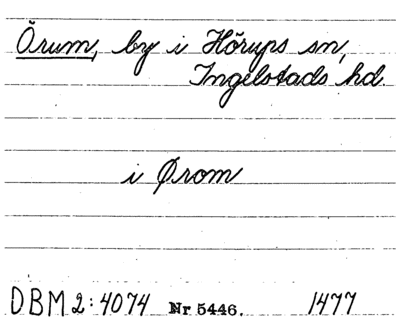 Örum, by i Hörups sn,
Ingelstads hd.
i Ørom
DBM 2:4074 Nr 5446. 1477